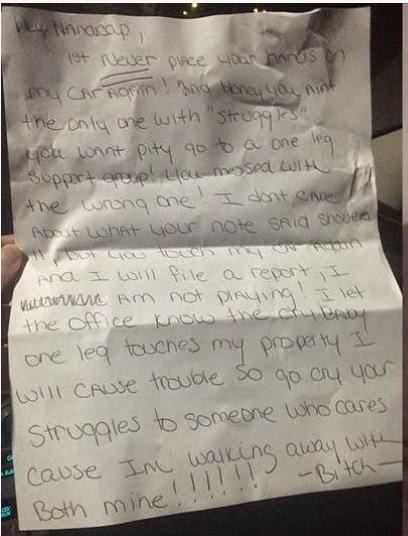 Hey Handicap,
1st Never place your hands on
my car Again! 2nd Honey you Aint
the only one with "struggles"
you want pity go to a one leg
support group! You messed with
the wrong one! I dont care
About what your note said shove
it, but you touch my car Again
And I will file a report, I
Am not playing! I let
the office know the cry baby
one leg touches my property I
will cause trouble so go cry your
struggles to someone who cares
cause Im walking away with
Both mine!!!!!! -Bitch-